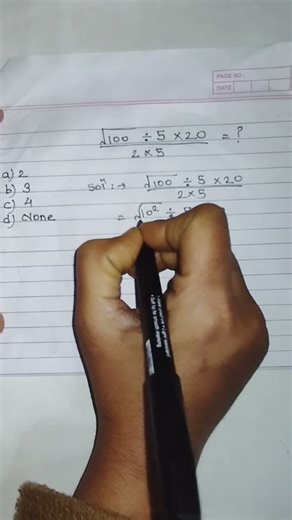 PAGE NO.:
DATE
√100 ÷ 5 × 20 / 2 × 5 = ?
a) 2
b) 3
c) 4
d) None
Solⁿ :→ √100 ÷ 5 × 20 / 2 × 5
= √10² ÷ 5